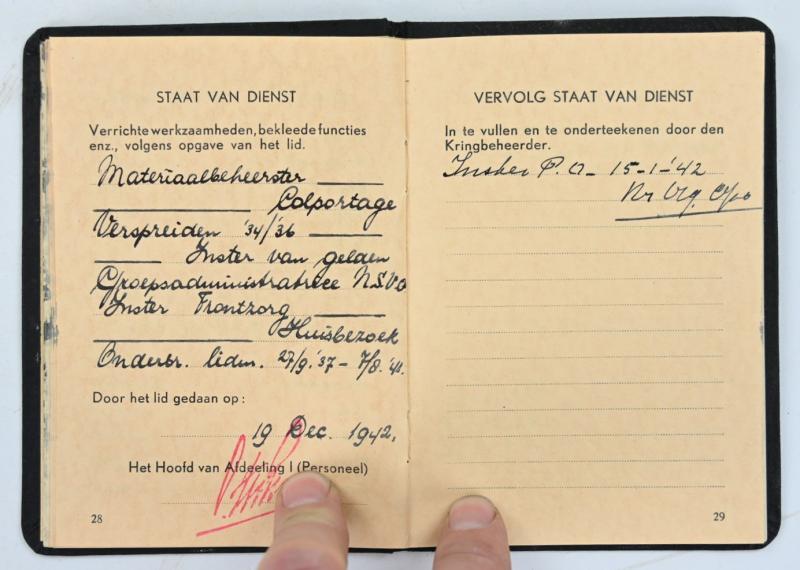 STAAT VAN DIENST
Verrichte werkzaamheden, bekleede functies
enz., volgens opgave van het lid.
Materiaalbeheerster
Colportage
Verspreiden '34/'36
Inster van gelden
Groepsadministratrice N.S.V.O
Inster Frontzorg
Huisbezoek
Onderbr. lidm. 27/9.'37 - 7/8.'40.
Door het lid gedaan op:
19 Dec. 1942.
Het Hoofd van Afdeeling I (Personeel)
28
VERVOLG STAAT VAN DIENST
In te vullen en te onderteekenen door den
Kringbeheerder.
P.O - 15-1-'42
29